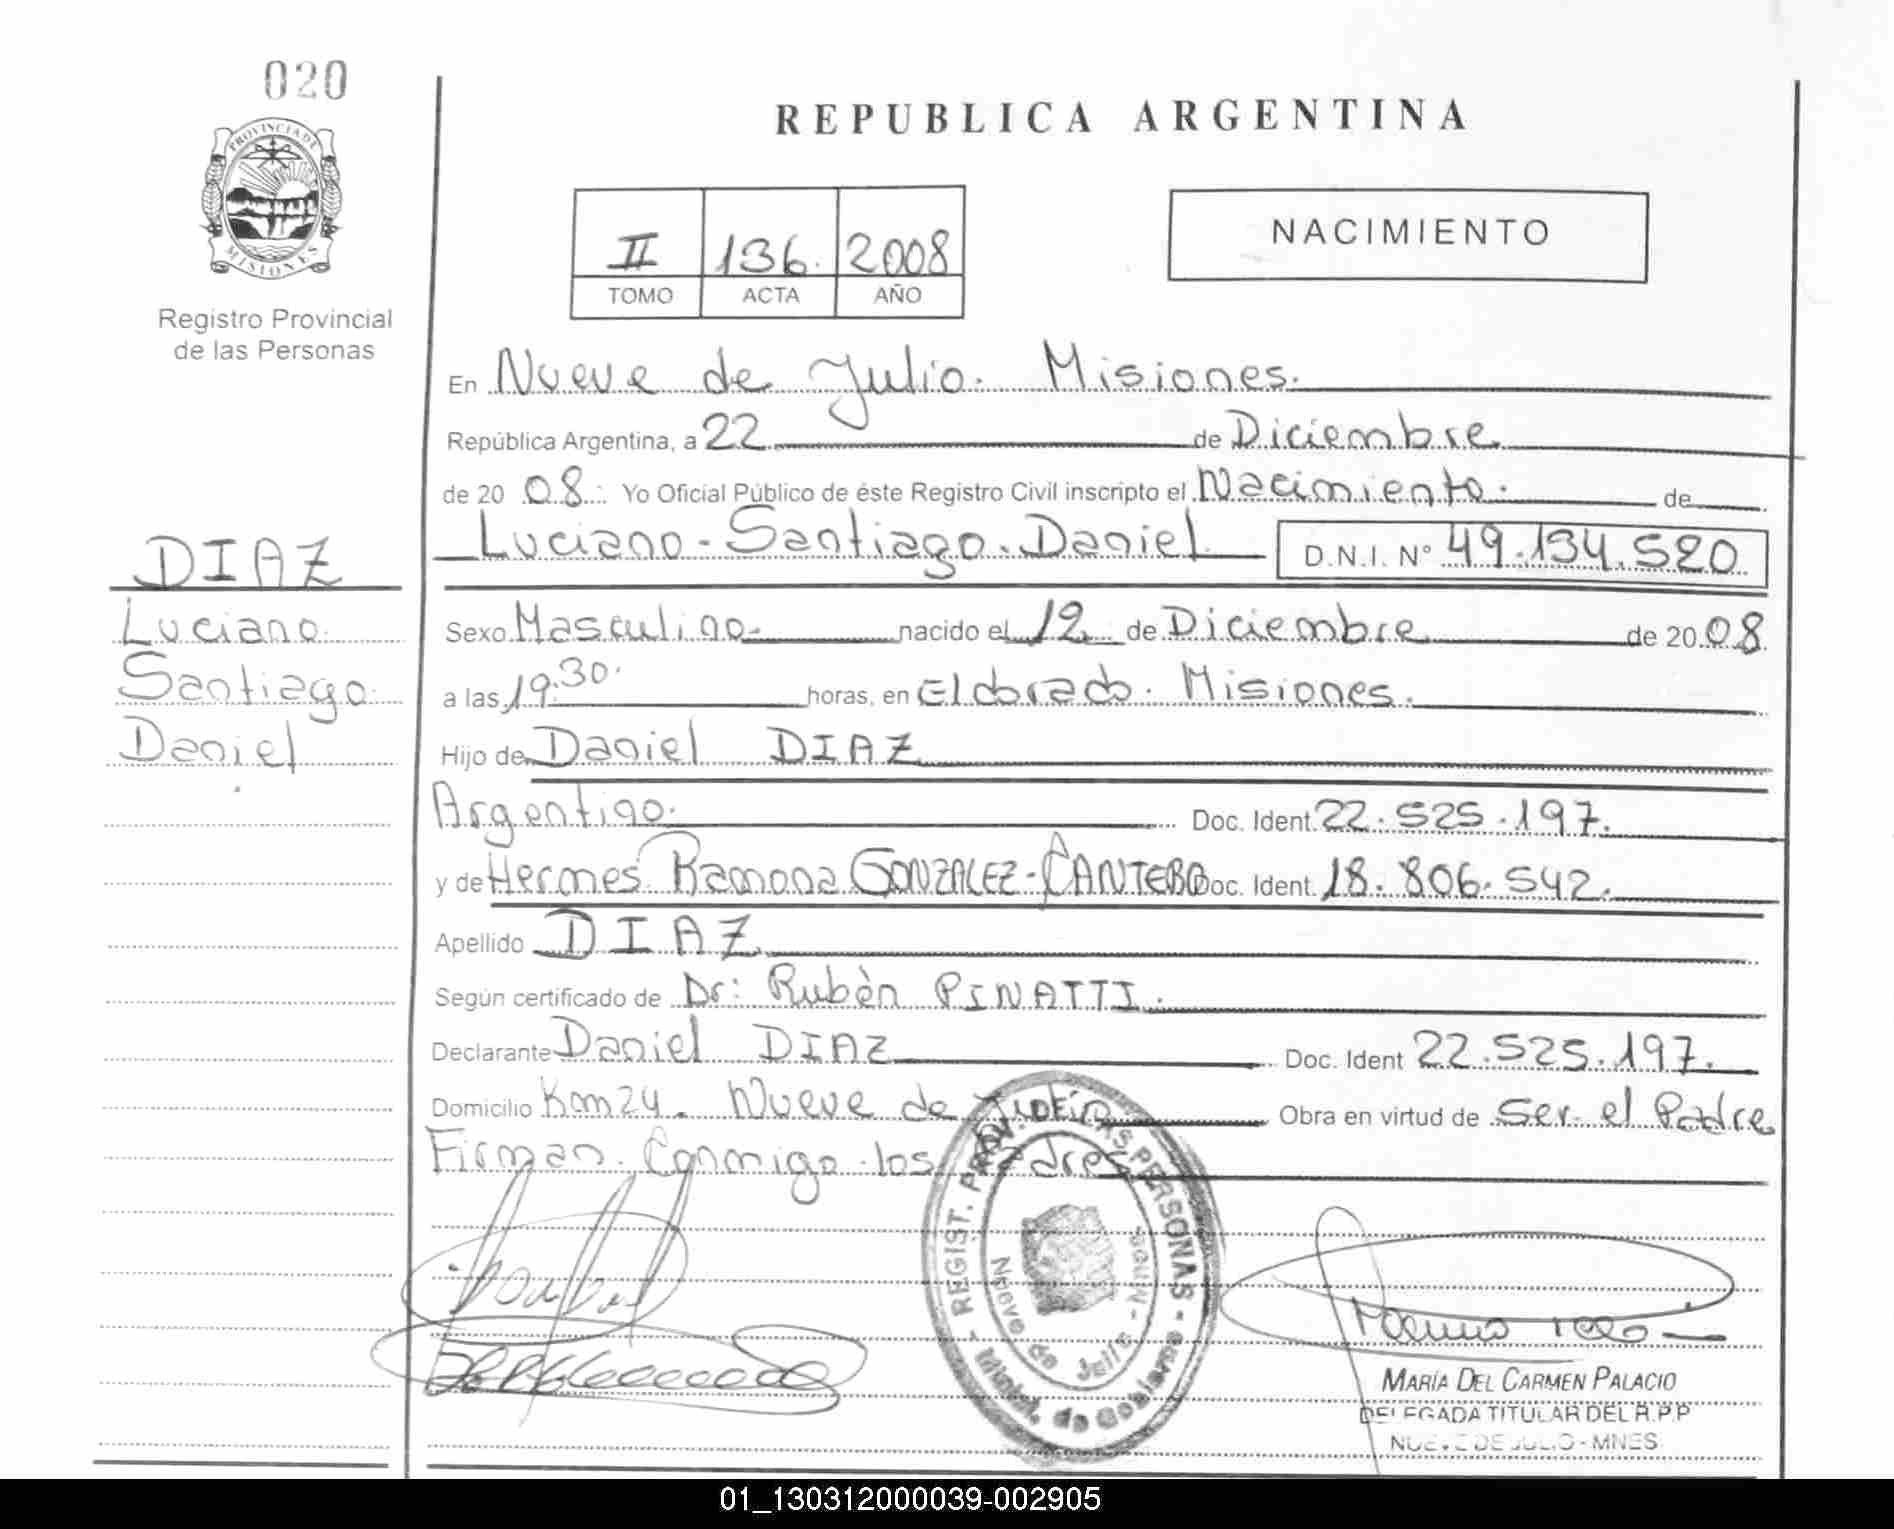 020
PROVINCIA DE
MISIONES
Registro Provincial
de las Personas
REPUBLICA ARGENTINA
II 136. 2008
TOMO ACTA AÑO
NACIMIENTO
En Nueve de Julio. Misiones.
República Argentina, a 22 de Diciembre
de 20 08. Yo Oficial Público de éste Registro Civil inscripto el Nacimiento. de
Luciano - Santiago. Daniel D.N.I. N° 49.134.520
DIAZ
Luciano
Santiago
Daniel
Sexo Masculino nacido el 12 de Diciembre de 20 08
a las 19:30 horas, en Eldorado. Misiones.
Hijo de Daniel DIAZ
Argentino. Doc. Ident. 22.525.197.
y de Hermes Ramona GONZALEZ-CANTERO Doc. Ident. 18.806.542.
Apellido DIAZ
Según certificado de Dr: Rubèn PINATTI.
Declarante Daniel DIAZ Doc. Ident 22.525.197.
Domicilio Km 24. Nueve de Julio Obra en virtud de Ser el Padre
Firman Conmigo los Padres
REGIST. PROV. DE LAS PERSONAS - Minist. de Gobierno -
Nueve de Julio - Mnes.
MARÍA DEL CARMEN PALACIO
DELEGADA TITULAR DEL R.P.P
NUEVE DE JULIO - MNES
01_130312000039-002905